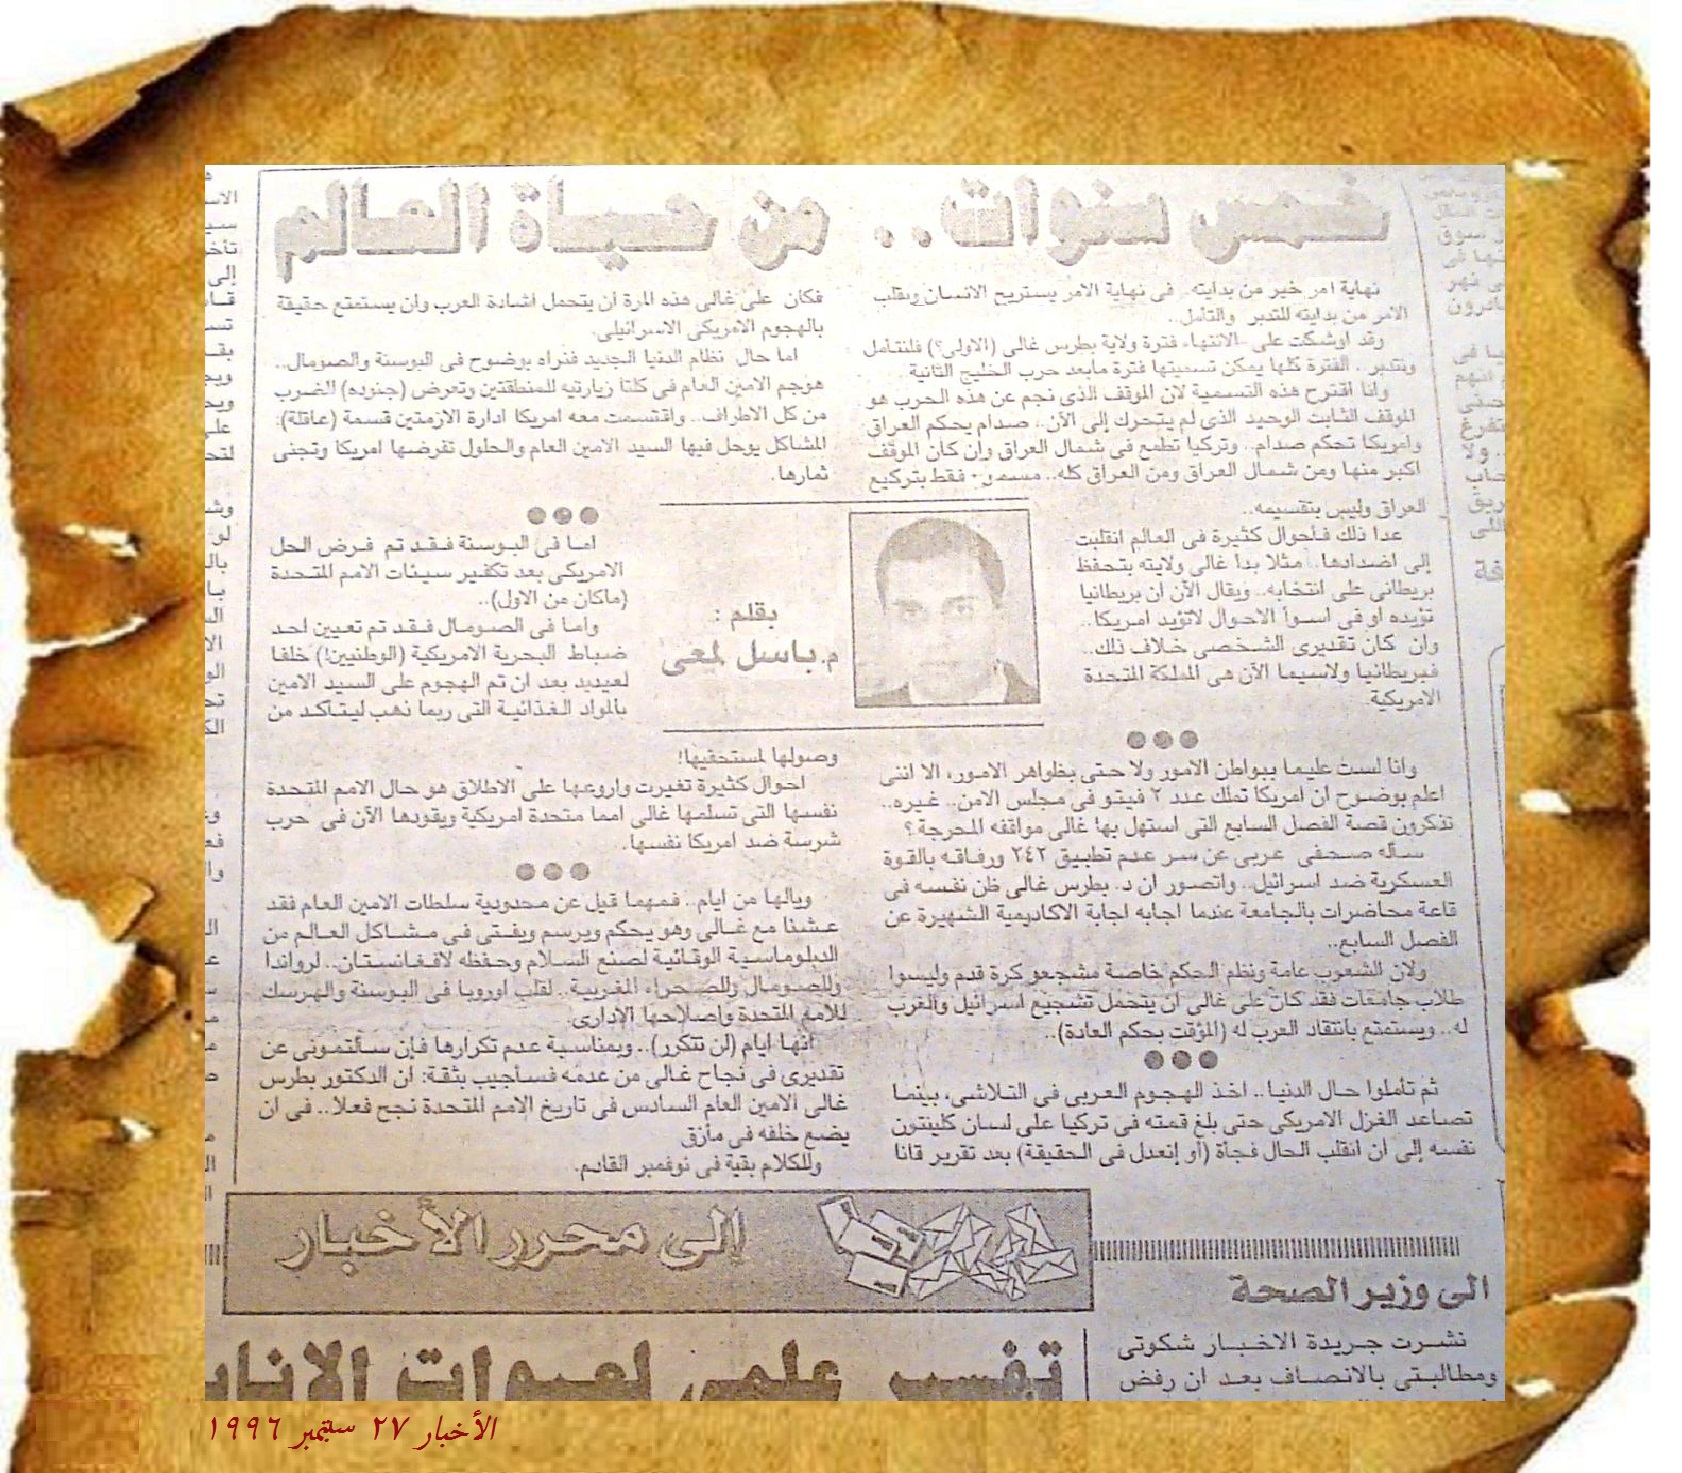 خمس سنوات .. من حياة العالم
نهاية امر خير من بدايته.. فى نهاية الامر يستريح الانسان ويقلب
الامر من بدايته للتدبر والتأمل..
وقد اوشكت على الانتهاء فترة ولاية بطرس غالى (الاولى؟) فلنتأمل
ونتدبر.. الفترة كلها يمكن تسميتها فترة مابعد حرب الخليج الثانية
وانا اقترح هذه التسمية لان الموقف الذى نجم عن هذه الحرب هو
الموقف الثابت الوحيد الذى لم يتحرك إلى الآن.. صدام يحكم العراق
وامريكا تحكم صدام.. وتركيا تطمع فى شمال العراق وإن كان الموقف
اكبر منها ومن شمال العراق ومن العراق كله.. فقط بتركيع
العراق وليس بتقسيمه..
عدا ذلك فاحوال كثيرة فى العالم انقلبت
إلى اضدادها.. مثلا بدا غالى ولايته بتحفظ
بريطانى على انتخابه.. ويقال الآن ان بريطانيا
تؤيده او فى اسوأ الاحوال لاتؤيد امريكا..
وان كان تقديرى الشخصى خلاف ذلك..
فبريطانيا ولاسيما الآن هى المملكة المتحدة
الامريكية.
●●●
وانا لست عليما ببواطن الامور ولا حتى بظواهر الامور، الا اننى
اعلم بوضوح ان امريكا تملك عدد ٢ فيتو فى مجلس الامن.. غيره..
تذكرون قصة الفصل السابع التى استهل بها غالى مواقفه المحرجة؟
سأله صحفى عربى عن سر عدم تطبيق ٢٤٢ ورفاقه بالقوة
العسكرية ضد اسرائيل.. واتصور ان د. بطرس غالى ظن نفسه فى
قاعة محاضرات بالجامعة عندما اجابه اجابة الاكاديمية الشهيرة عن
الفصل السابع..
ولان الشعوب عامة ونظم الحكم خاصة مشجعو كرة قدم وليسوا
طلاب جامعات فقد كان على غالى ان يتحمل تشجيع اسرائيل والغرب
له.. ويستمتع بانتقاد العرب له (المؤقت بحكم العادة)..
●●●
ثم تأملوا حال الدنيا.. اخذ الهجوم العربى فى التلاشى، بينما
تصاعد الغزل الامريكى حتى بلغ قمته فى تركيا على لسان كلينتون
نفسه إلى ان انقلب الحال فجأة (أو إنعدل فى الحقيقة) بعد تقرير قانا
فكان على غالى هذه المرة ان يتحمل اشادة العرب وان يستمتع حقيقة
بالهجوم الامريكى الاسرائيلى.
اما حال نظام الدنيا الجديد فنراه بوضوح فى البوسنة والصومال..
هوجم الامين العام فى كلتا زيارتيه للمنطقتين وتعرض (جنوده) الضرب
من كل الاطراف.. واقتسمت معه امريكا ادارة الازمتين قسمة (عاقلة):
المشاكل يوحل فيها السيد الامين العام والحلول تفرضها امريكا وتجنى
ثمارها.
بقلم :
م. باسل لمعى
●●●
اما فى البوسنة فقد تم فرض الحل
الامريكى بعد تكفير سيئات الامم المتحدة
(ماكان من الاول)..
واما فى الصومال فقد تم تعيين احد
ضباط البحرية الامريكية (الوطنيين!) خلفا
لعيديد بعد ان تم الهجوم على السيد الامين
بالمواد الغذائية التى ربما ذهب ليتاكد من
وصولها لمستحقيها!
احوال كثيرة تغيرت واروعها على الاطلاق هو حال الامم المتحدة
نفسها التى تسلمها غالى امما متحدة امريكية ويقودها الآن فى حرب
شرسة ضد امريكا نفسها.
●●●
ويالها من ايام.. فمهما قيل عن محدودية سلطات الامين العام فقد
عشنا مع غالى وهو يحكم ويرسم ويفتى فى مشاكل العالم من
الدبلوماسية الوقائية لصنع السلام وحفظه لافغانستان.. لرواندا
وللصومال وللصحراء المغربية.. لقلب اوروبا فى البوسنة والهرسك
للامم المتحدة واصلاحها الإدارى.
انها ايام (لن تتكرر).. وبمناسبة عدم تكرارها فإن سألتمونى عن
تقديرى فى نجاح غالى من عدمه فسأجيب بثقة: ان الدكتور بطرس
غالى الامين العام السادس فى تاريخ الامم المتحدة نجح فعلا.. فى ان
يضع خلفه فى مأزق
وللكلام بقية فى نوفمبر القادم.
إلى محرر الأخبار
الى وزير الصحة
نشرت جريدة الاخبار شكوتى
ومطالبتى بالانصاف بعد ان رفض
تفسير علمى لعبوات
الأخبار ٢٧ سبتمبر ١٩٩٦